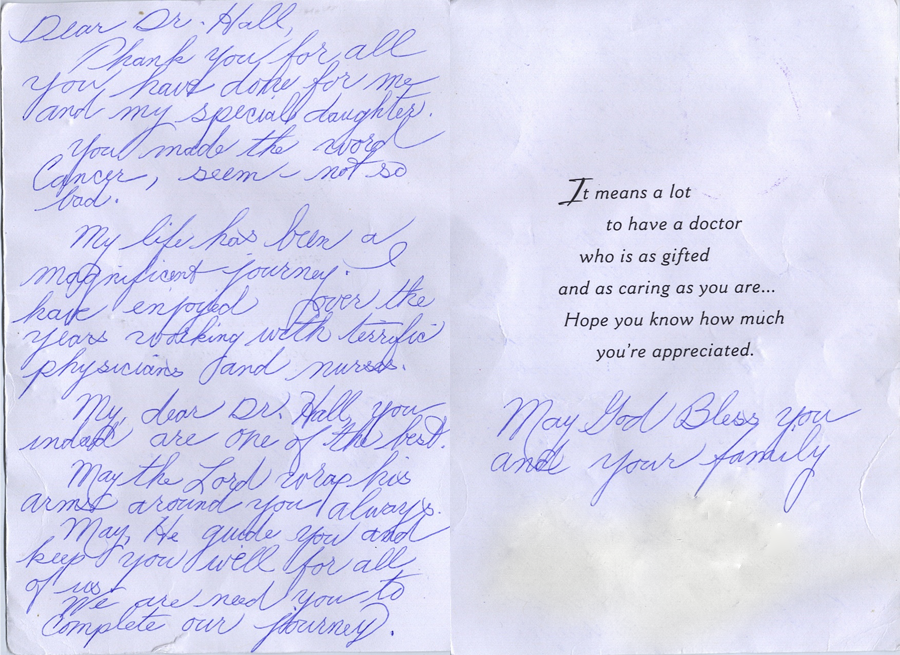 Dear Dr. Hall,
Thank you for all
you have done for me
and my special daughter.
You made the word
Cancer, seem - not so
bad.
My life has been a
magnificent journey. I
have enjoyed over the
years working with terrific
physicians and nurses.
My dear Dr. Hall, you
indeed are one of the best.
May the Lord wrap his
arms around you always.
May He guide you and
keep you well for all
of us.
We are need you to
complete our journey.
It means a lot
to have a doctor
who is as gifted
and as caring as you are...
Hope you know how much
you're appreciated.
May God Bless you
and your family